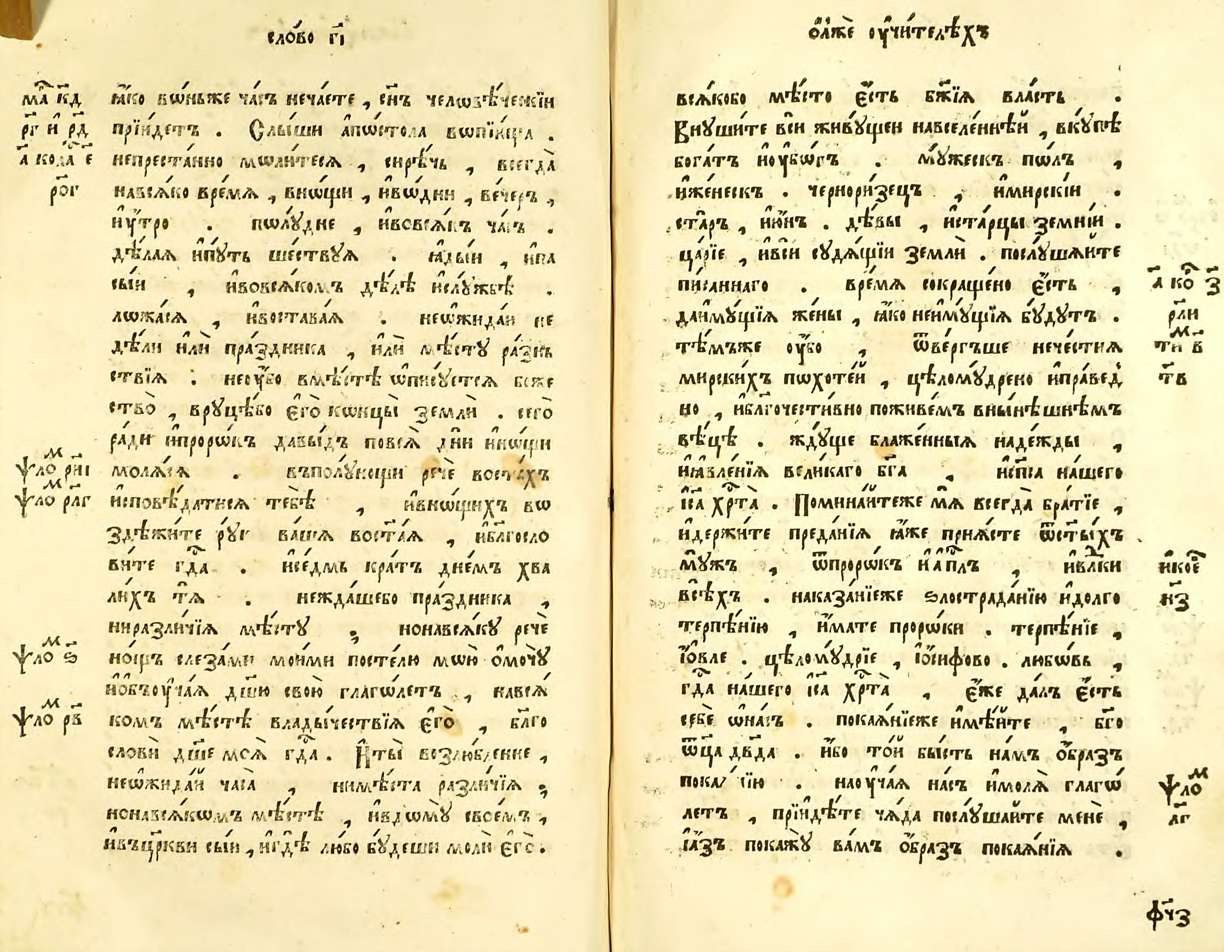 сло́во г҃і
ма́ к҃д
р҃г и҆ р҃д
а҃ кола́ є҃
р҃ог
ꙗ҆́ко вѡ́ньже ча́съ неча́ете , сн҃ъ человѣ́ческїи
прїи́детъ . Слы́ши а҆пѡ́стола вѡпїю́ща .
непреста́нно мѡли́теся , си́рѣчь , всегда̀
нався́ко вре́мя , внѡщѝ , и҆вѡднѝ , ве́черъ ,
и҆ꙋ҆́тро . пѡлꙋ́дне , и҆вовся́къ ча́съ .
дѣ́лая и҆пꙋ́ть ше́ствꙋя . ꙗ҆ды́и , и҆пїа
сы́и , и҆вовся́комъ дѣ́лѣ и҆слꙋ́жбѣ .
лѡжа́ся , и҆воставая . неѡ҆жида́и не
дѣ́ли и҆лѝ пра́здника , и҆лѝ мѣ́стꙋ ра́знь
ствїя . неᲂу҆́бо вмѣ́стѣ ѡ҆писꙋ́ется бж҃е
ство̀ , врꙋцѣ́бо є҆гѡ̀ кѡнцы̀ землѝ . сегѡ̀
ра́ди и҆прорѡ́къ давы́дъ повся̀ дни̑ и҆нѡ́щи
моля́ся . въполꙋ́нощи речѐ воста́хъ
и҆сповѣ́датися тебѣ̀ , и҆внѡщи́хъ вѡ
здѣжи́те рꙋ́кѝ ва́шя воста́я , и҆бл҃госло
ви́те гд҇а . и҆се́дмь кра́тъ дне́мъ хва
ли́хъ тя . нежда́шебо пра́здника ,
ниразли́чїя мѣ́стꙋ ; нонався́кꙋ речѐ
ѱало рн҃і
ѱало рл҃г
ѱало ѕ҃
ѱало р҃в
но́щь слеза́ми мои́ми посте́лю мѡю̀ ѡ҆мочꙋ̀
и҆ѡбъᲂу҆ча́я дш҃ꙋ свою̀ глаго́летъ , нався́
комъ мѣ́стѣ влады́чествїя є҆гѡ̀ , бл҃го
словѝ дш҃е моя̀ гд҇а . И҆ты̀ возлю́бленне ,
неѡ҆жида́и часа̀ , нимѣ́ста разли́чїя ;
нонався́комъ мѣ́стѣ , и҆вдо́мꙋ свое́мъ ,
и҆въцр҃кви сы́и , и҆гдѣ̀ лю́бо бꙋ́деши молѝ є҆гѡ̀ .
ѡ҆лжѐ ᲂу҆чи́телѣхъ
вся́кобо мѣ́сто є҆́сть бж҃їя вла́сть .
Внꙋши́те всѝ живꙋ́щеи навселе́ннѣи , вкꙋ́пѣ
бога́тъ и҆ᲂу҆бо́гъ . мꙋ́жескъ по́лъ ,
и҆же́нескъ . чернори́зецъ , и҆мирскі́и .
ста́ръ , и҆ю҆́нъ . дѣ́вы , и҆ста́рцы зе́мнїи .
ца́рїе , и҆всѝ сꙋдя́щїи землѝ . послꙋ́шяите
пи́саннаго . вре́мя сокраще́но є҆́сть ,
даи҆мꙋ́щїя жены̀ , ꙗ҆́ко неи҆мꙋ́щїя бꙋ́дꙋтъ .
тѣ́мъже ᲂу҆́бо , ѿве́ргъше нече́стия
мирски́хъ по́хотеи , цѣломꙋ́дрено и҆пра́вед
но , и҆благоче́стивно поживе́мъ вны́нѣшнѣмъ
вѣ́цѣ . жд꙼ꙋще блаже́нныя наде́жды ,
и҆ꙗ҆вле́нїя вели́каго бг҃а , и҆сп҃са на́шего
і҆с҃а хр҇та̀ . Помина́итеже мя̀ всегда̀ бра́тїе ,
и҆держи́те преда́нїя ꙗ҆́же прия́сте ѿст҃ы́хъ
мꙋ́жъ , ѿпрорѡ́къ и҆ а҆пл҃ъ , и҆вл҃ки
всѣ́хъ . наказа́нїеже ѕлострада́нїю и҆до́лго
терпѣ́нїю , и҆́мате прорѡ́ки . терпѣ́нїе ,
і҆́ѡвле . цѣломꙋ́дрїе , і҆ѡ́сифово . любо́вь ,
гд҇а на́шего і҆с҃а хр҇та̀ , є҆́же да́лъ є҆́сть
себѐ ѡ҆на́съ . покая́нїеже и҆мѣ́ите , бг҃о
ѿца̀ дв҃да . и҆́бо то́и бы́сть на́мъ ѡ҆́бразъ
покая́нїю . наᲂу҆ча́я на́съ и҆моля̀ глаго́
летъ , прїидѣ́те ча́да послꙋ́шаите менѐ ,
і҆а҆́зъ покажꙋ̀ ва́мъ ѡ҆́бразъ покая́нїя .
а҃ ко з҃
рл҃и
ти в҃
т҃в
и҆коѐ
н҃з
ѱало
л҃г
ф҃чз